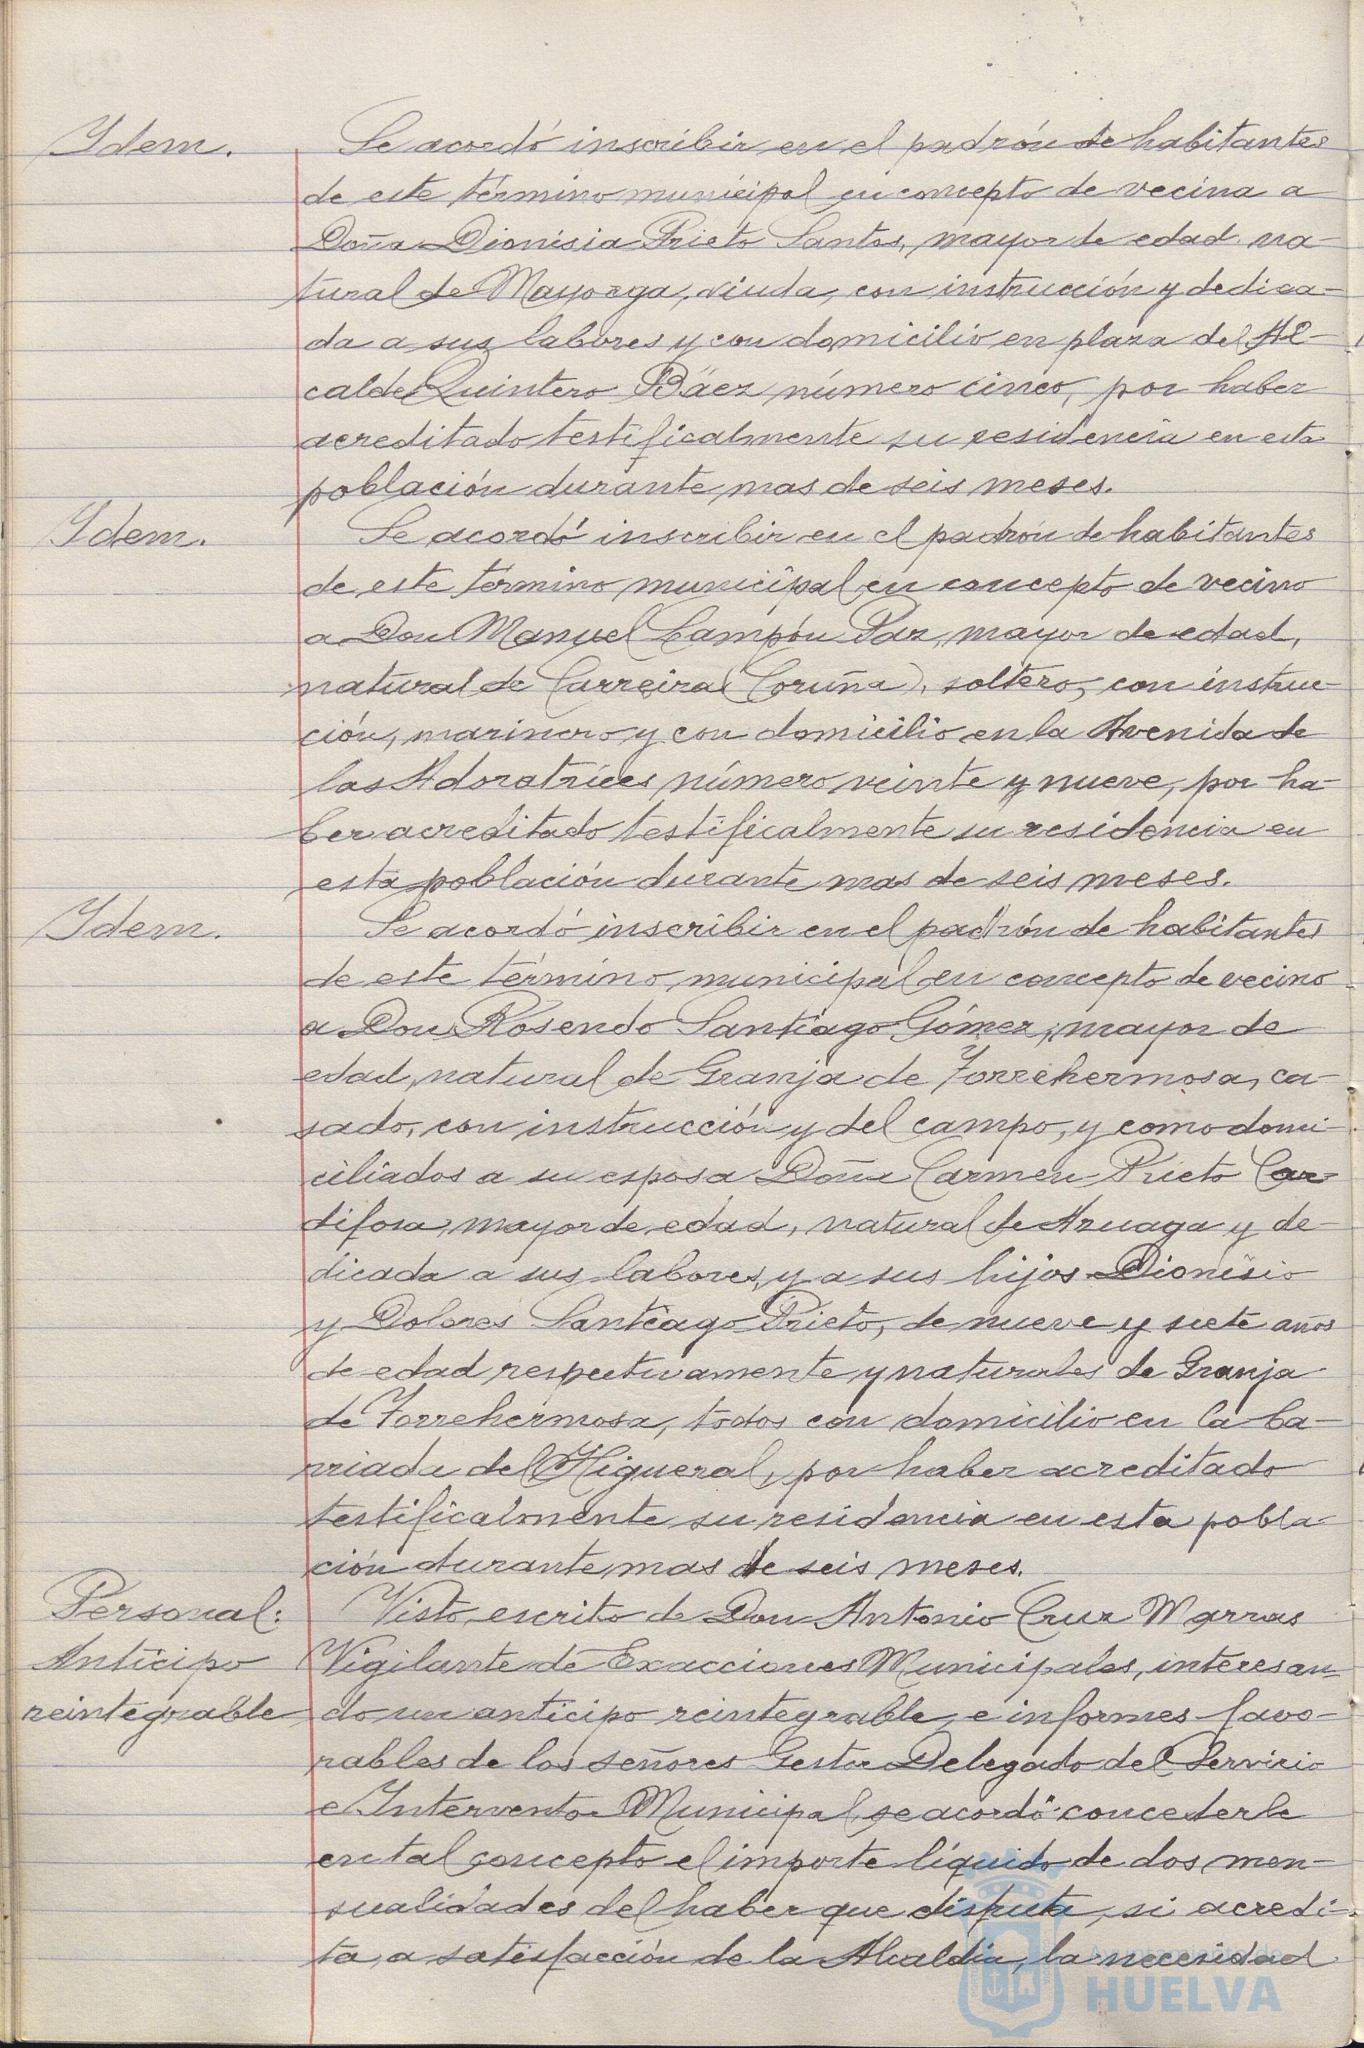 Ydem.
Se acordó inscribir en el padrón de habitantes
de este término municipal en concepto de vecina a
Doña Dionisia Prieto Santos, mayor de edad na-
tural de Mayorga, viuda, con instrucción y dedica-
da a sus labores y con domicilio en plaza del Al-
calde Quintero Báez número cinco, por haber
acreditado testificalmente su residencia en esta
población durante mas de seis meses.
Ydem.
Se acordó inscribir en el padrón de habitantes
de este término municipal en concepto de vecino
a Don Manuel Campón Paz, mayor de edad,
natural de Carreira (Coruña), soltero, con instruc-
ción, marinero y con domicilio en la Avenida de
las Adoratrices número veinte y nueve, por ha-
ber acreditado testificalmente su residencia en
esta población durante mas de seis meses.
Ydem.
Se acordó inscribir en el padrón de habitantes
de este término municipal en concepto de vecino
a Don Rosendo Santiago Gómez, mayor de
edad, natural de Granja de Torrehermosa, ca-
sado, con instrucción y del campo, y como domi-
ciliados a su esposa Doña Carmen Prieto Car-
difosa, mayor de edad, natural de Azuaga y de-
dicada a sus labores, y a sus hijos Dionisio
y Dolores Santiago Prieto, de nueve y siete años
de edad respectivamente y naturales de Granja
de Torrehermosa, todos con domicilio en la ba-
rriada del Higueral, por haber acreditado
testificalmente su residencia en esta pobla-
ción durante mas de seis meses.
Personal:
Anticipo
reintegrable
Visto escrito de Don Antonio Cruz Marras
Vigilante de Exacciones Municipales, interesan-
do un anticipo reintegrable, e informes favo-
rables de los señores Gestor Delegado del Servicio
e Interventor Municipal se acordó concederle
en tal concepto el importe líquido de dos men-
sualidades del haber que disfruta, si acredi-
ta, a satisfacción de la Alcaldia, la necesidad
Ayuntamiento de
HUELVA